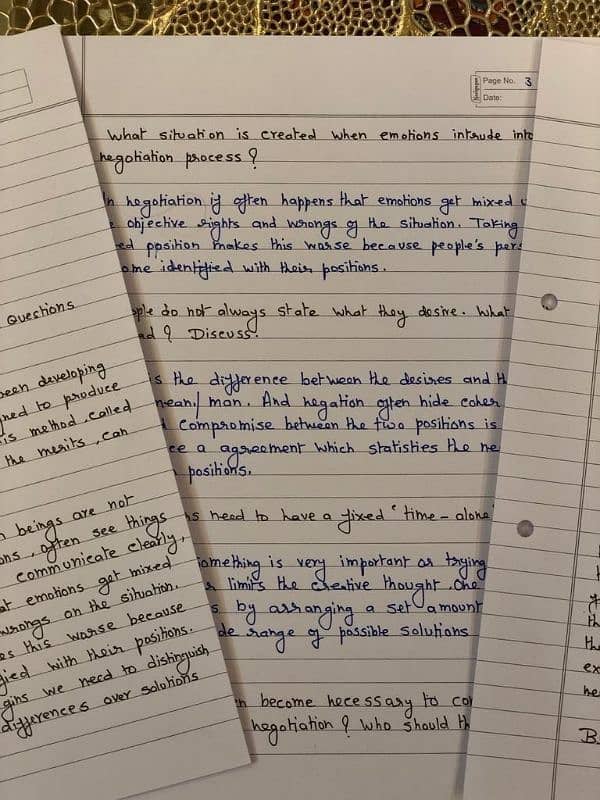 Page No. 3
Date:
What situation is created when emotions intrude into
negotiation process ?
negotiation if often happens that emotions get mixed
objective rights and wrongs of the situation. Taking
position makes this worse because people's
identified with their positions.
do not always state what they desire. What
? Discuss.
is the difference between the desires and
mean/ man. And negation often hide
Compromise between the two positions is
a agreement which statisties the
positions.
need to have a fixed ' time - alone
something is very important or trying
limits the creative thought. One
by arranging a set amount
range of possible solutions
become necessary to
negotiation ? Who should
Questions
been developing
to produce
is method, called
the merits, can
beings are not
often see things
communicate clearly,
emotions get mixed
wrongs on the situation.
this worse because
with their positions.
we need to distinguish
differences over solutions
B